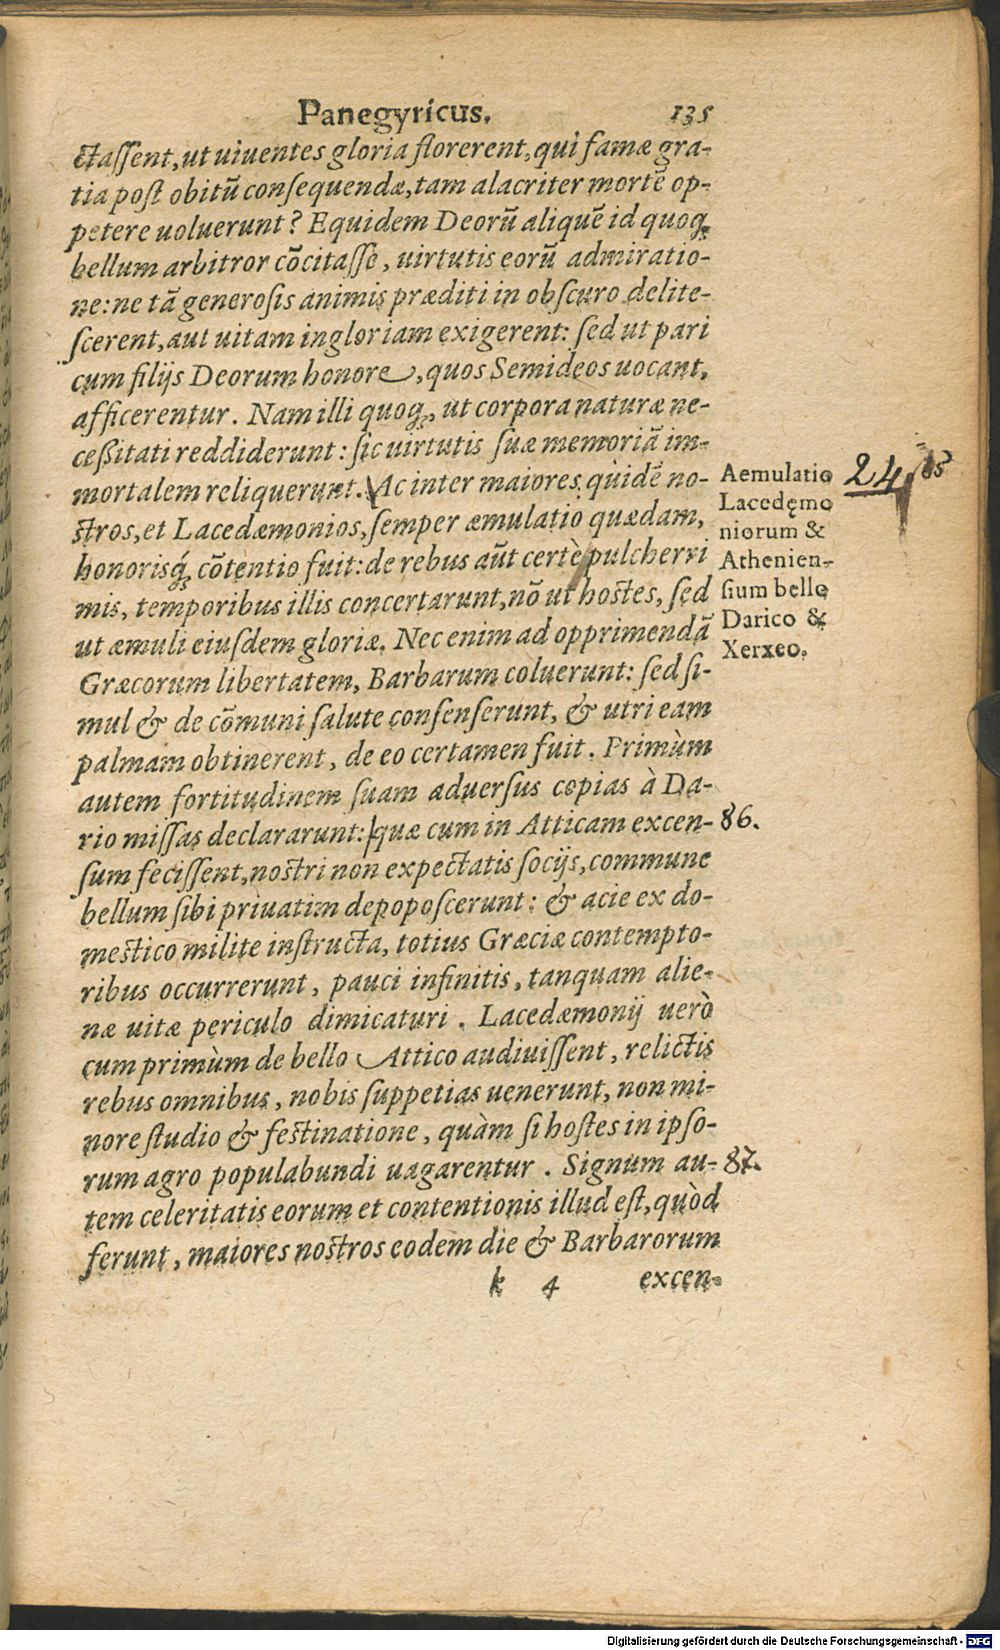 Panegyricus. 135
ctassent, ut uiuentes gloria florerent, qui famæ gra-
tia post obitũ consequendæ, tam alacriter mortẽ op-
petere uoluerunt? Equidem Deorũ aliquẽ id quoq;
bellum arbitror cõcitasse, uirtutis eorũ admiratio-
ne: ne tã generosis animis præditi in obscuro delite-
scerent, aut uitam ingloriam exigerent: sed ut pari
cum filijs Deorum honore, quos Semideos uocant,
afficerentur. Nam illi quoq;, ut corpora naturæ ne-
cessitati reddiderunt: sic uirtutis suæ memoriã im-
mortalem reliquerunt. Ac inter maiores quidẽ no-
stros, et Lacedæmonios, semper æmulatio quædam,
honorisq́; cõtentio fuit: de rebus aũt certè pulcherri
mis, temporibus illis concertarunt, nõ ut hostes, sed
ut æmuli eiusdem gloriæ. Nec enim ad opprimendã
Græcorum libertatem, Barbarum coluerunt: sed si-
mul & de cõmuni salute consenserunt, & utri eam
palmam obtinerent, de eo certamen fuit. Primùm
autem fortitudinem suam aduersus copias à Da-
rio missas declararunt: quæ cum in Atticam excen-
sum fecissent, nostri non expectatis socijs, commune
bellum sibi priuatim depoposcerunt: & acie ex do-
mestico milite instructa, totius Græciæ contempto-
ribus occurrerunt, pauci infinitis, tanquam alie-
næ uitæ periculo dimicaturi. Lacedæmonij uerò
cum primùm de bello Attico audiuissent, relictis
rebus omnibus, nobis suppetias uenerunt, non mi-
nore studio & festinatione, quàm si hostes in ipso-
rum agro populabundi uagarentur. Signum au-
tem celeritatis eorum et contentionis illud est, quòd
ferunt, maiores nostros eodem die & Barbarorum
k 4 excen-
Aemulatio
Lacedęmo
niorum &
Athenien-
sium bello
Darico &
Xerxeo.
24 85
86.
87.
Digitalisierung gefördert durch die Deutsche Forschungsgemeinschaft - DFG